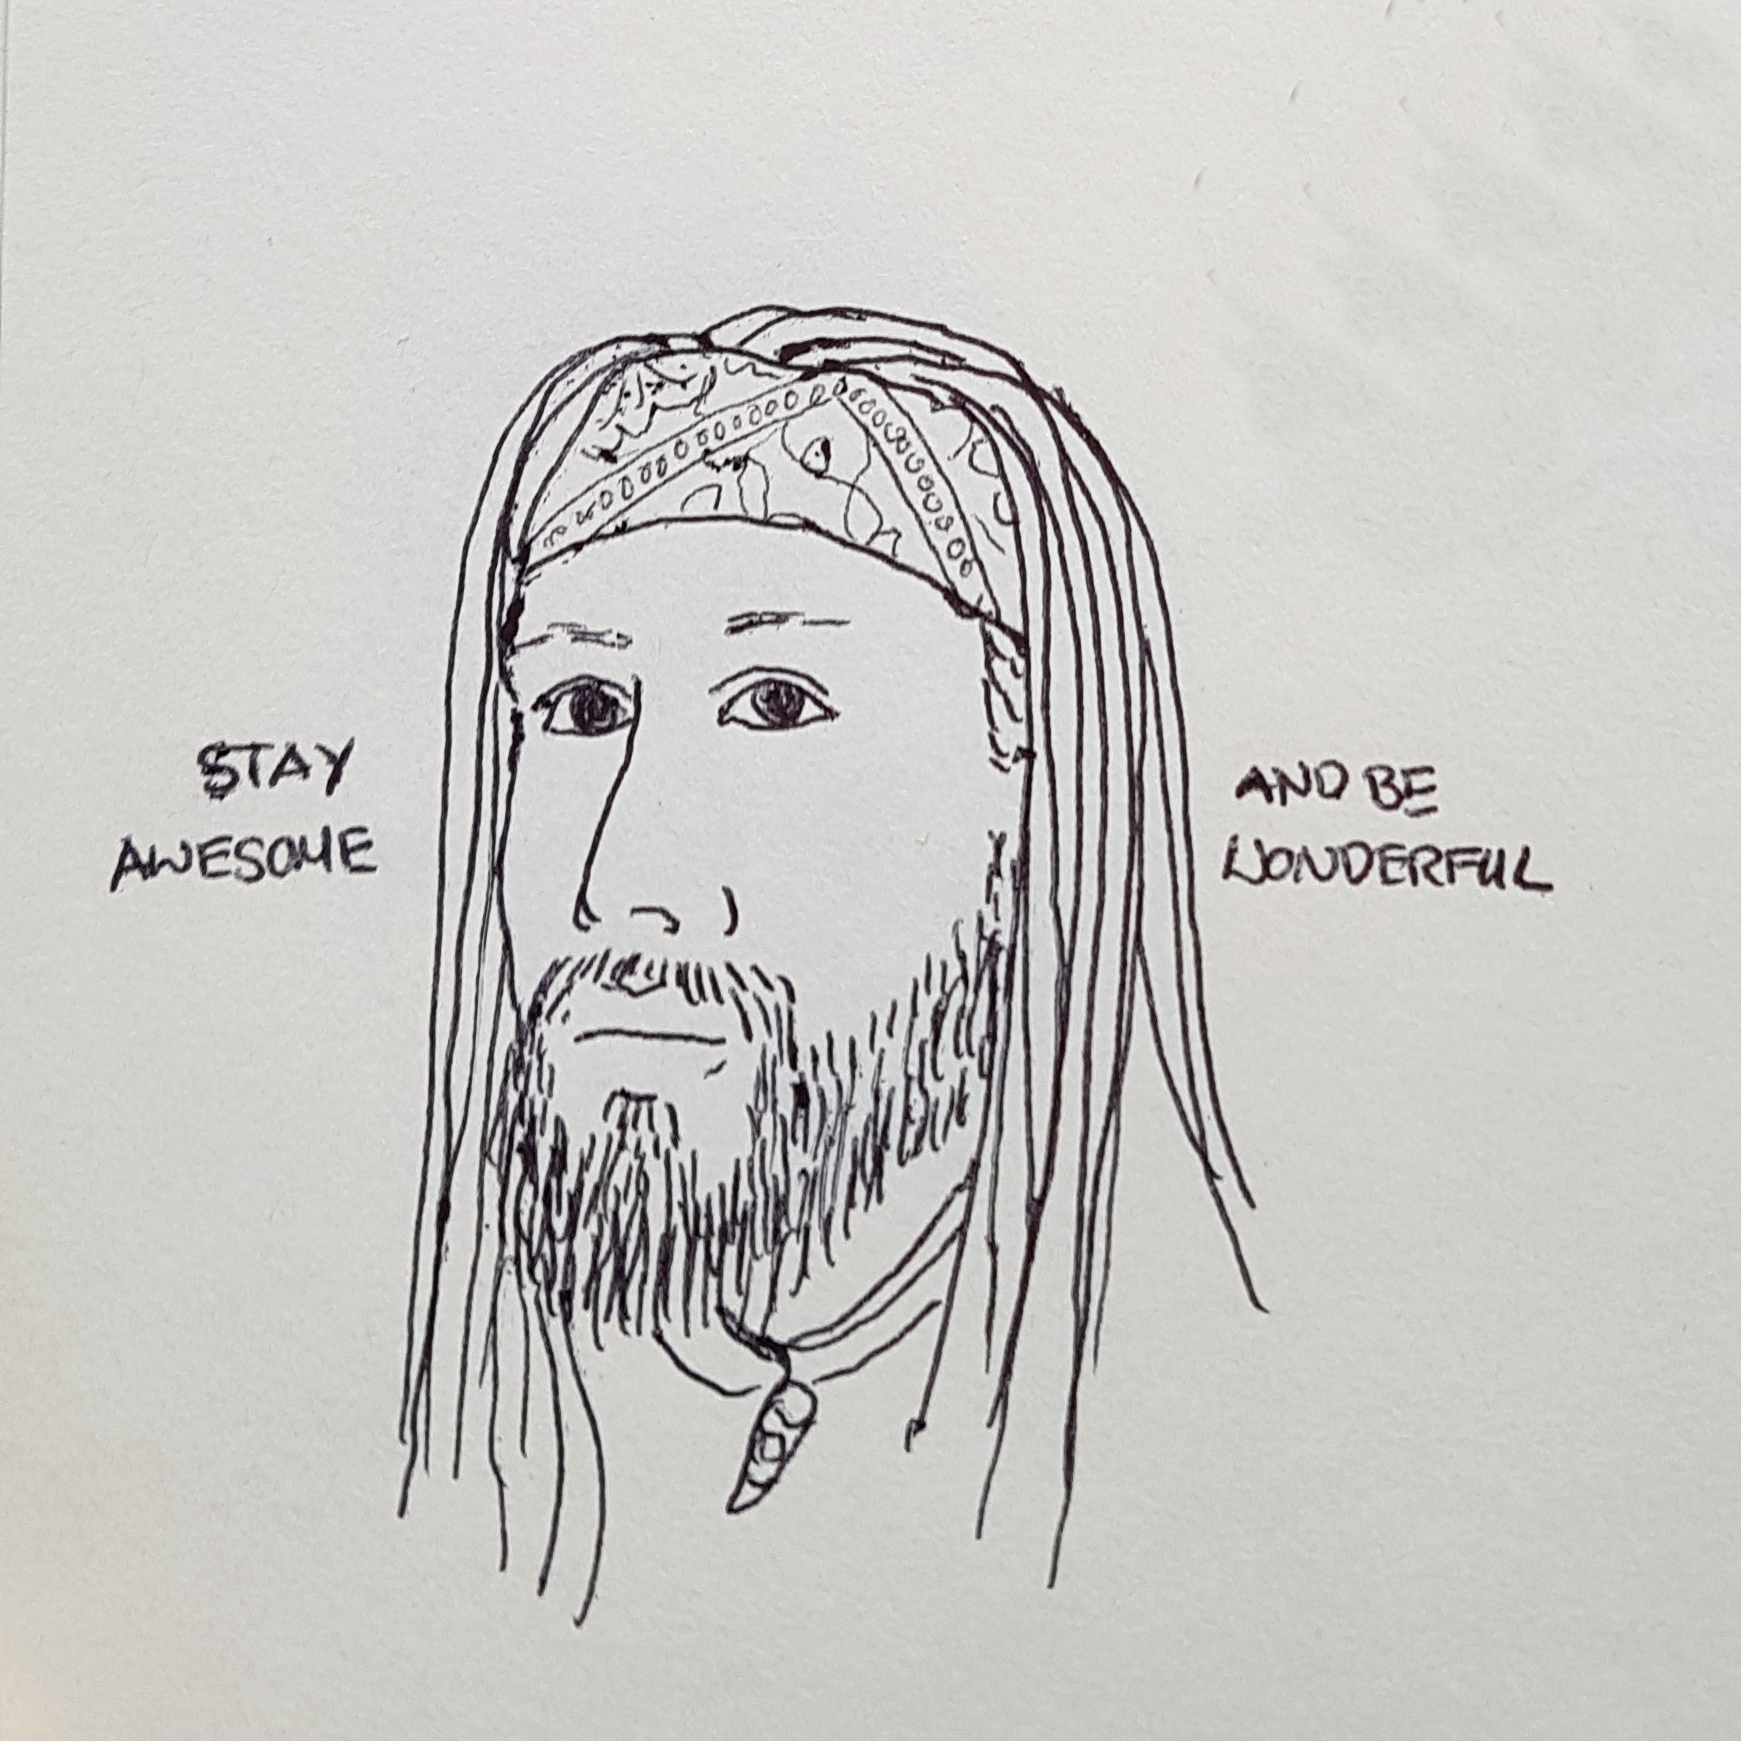 STAY
AWESOME
AND BE
WONDERFUL